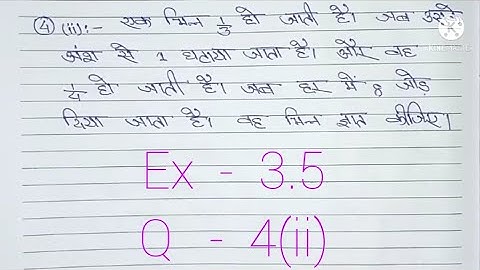 ④ (ii):- एक भिन्न 1/3 हो जाती है। जब उसके
अंश से 1 घटाया जाता है। और वह
1/4 हो जाती है। जब हर में 8 जोड़
दिया जाता है। वह भिन्न ज्ञात कीजिए।
Ex - 3.5
Q - 4(ii)